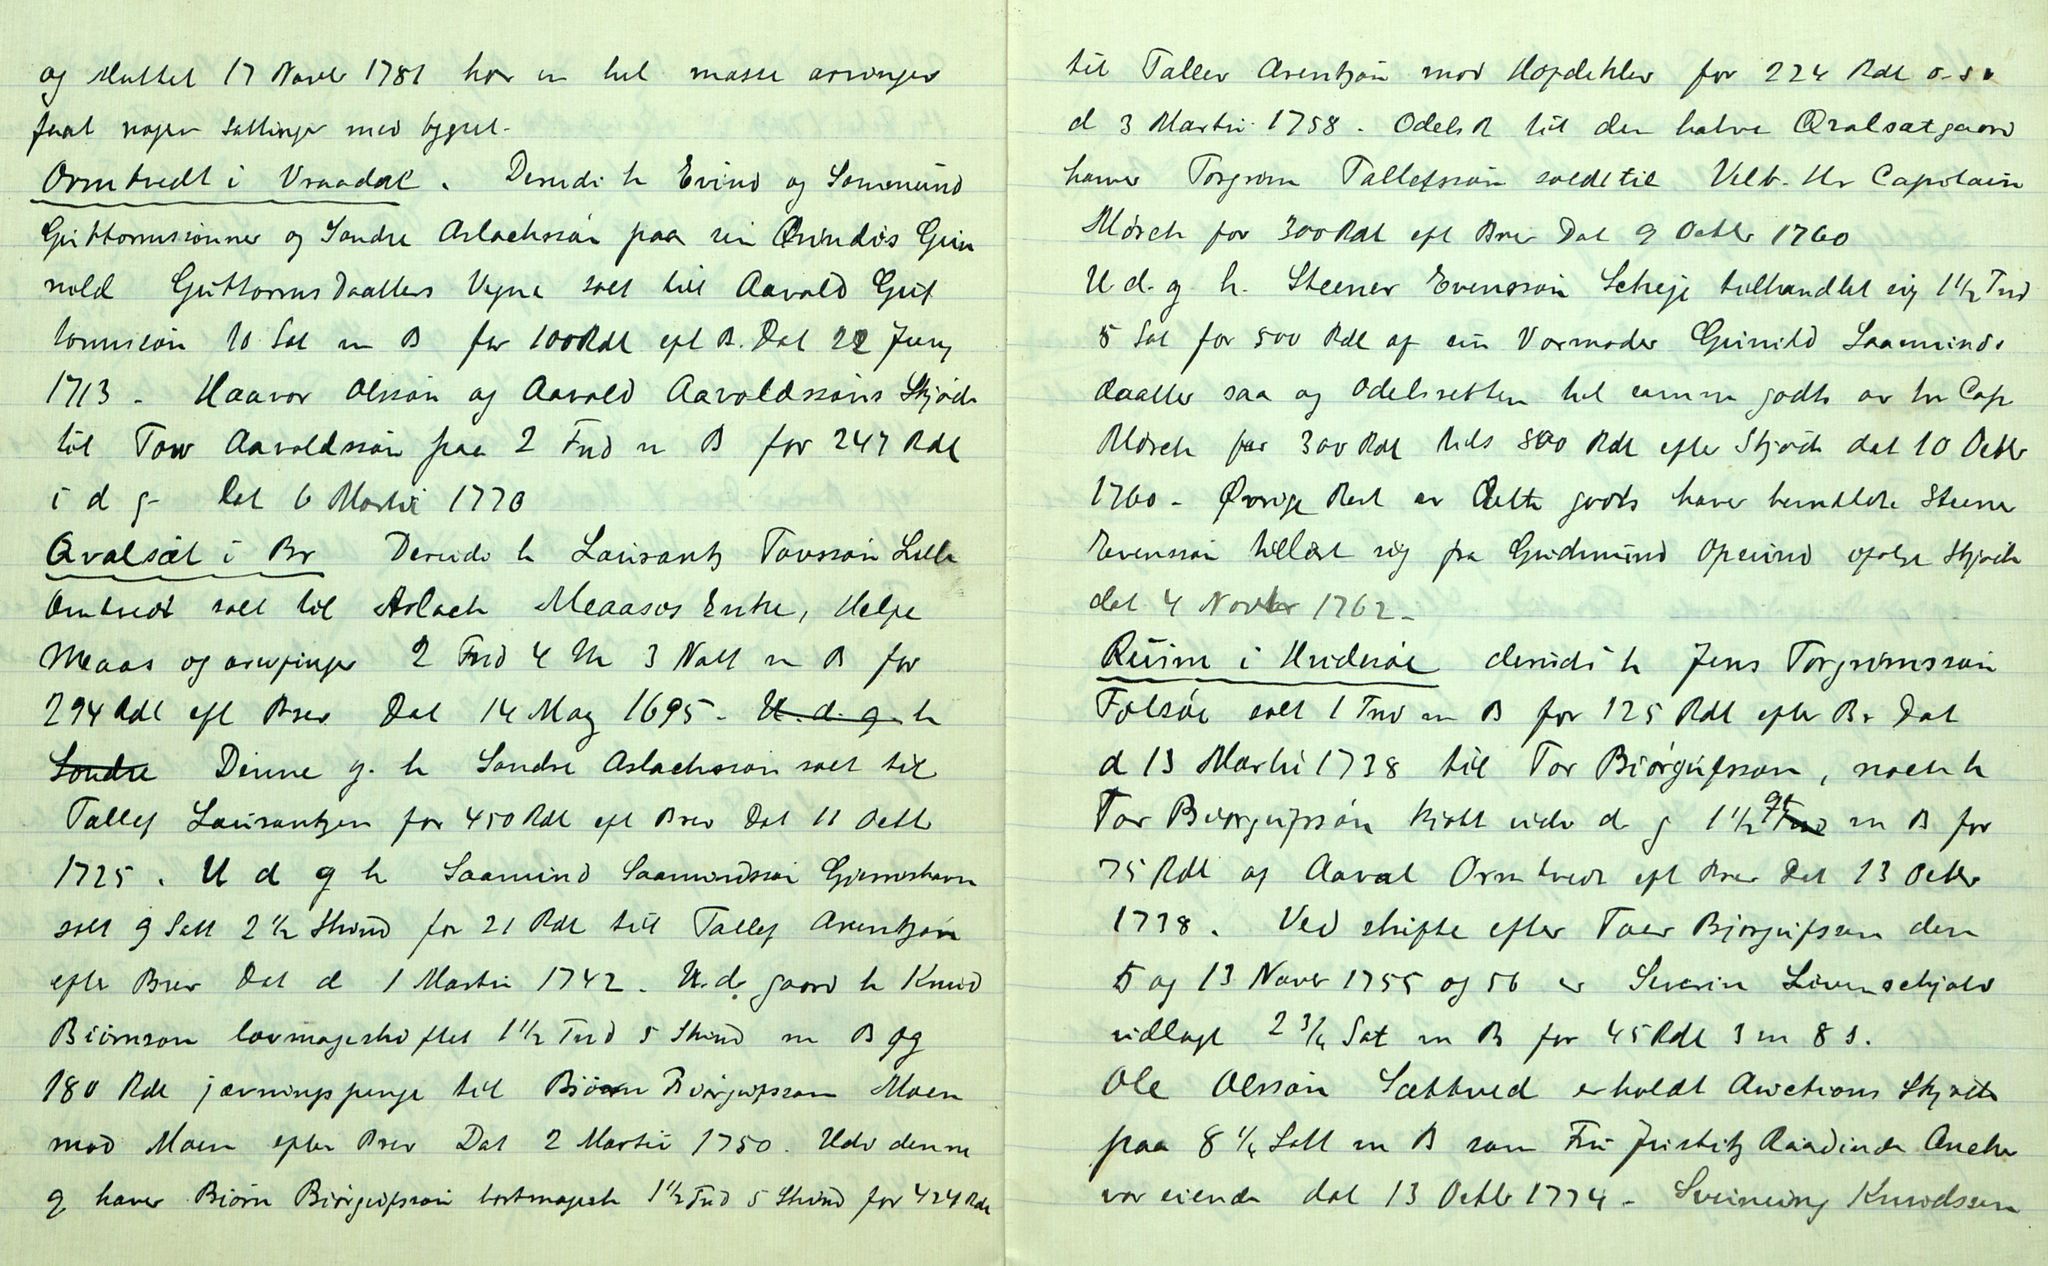 og sluttet 17 Novbr 1781 har en hel masse arvinger
faat nogen sættinger med bygsel.
Ormtvedt i Vraadal. Derudi h Evind og Sammund
Guttormssønner og Sondre Aslachssøn paa sin Qvindes Gun
nild Guttormsdaatters Vegne solt till Aavold Gut
tormssøn 10 Sat m B for 100 Rdl eft B. Dat 22 Juny
1713 - Haavor Olssøn og Aavold Aavoldssøns Skjøde
til Tow Aavoldssøn paa 2 Tnd m B for 247 Rdl
i d g - Dat 6 Martii 1770
Qvalsæt i Br Derudi h Laurantz Tovssøn Lille
Omtvedt solt til Aslach Meaasos Enke, Helge
Meaas og arvefinger 2 Tnd 4 Hr 3 Natt m B for
294 Rdl eft Brev Dat 14 May 1695 - U. d. g. h
Sondre Denne g. h Sondre Aslachsson solt til
Tallef Laurantzen for 450 Rdl eft Brev Dat 11 Octb
1725. U d g h Saamund Saamundssøn Giernshavn
solt 9 Sett 2 1/2 Skind for 21 Rdl till Tallef Arentzøn
efter Brev Dat d 1 Martii 1742. U. d. gaard h Knud
Biørnson lovmageskiftet 1 1/2 Tnd 5 Skind m B og
180 Rdl jævningspenge til Bjørn Biørgufsson Moen
mod Moen efter Brev Dat 2 Martii 1750. Udv denne
g haver Biørn Biørgufssøn bortmagesk 1 1/2 Tnd 5 Skind for 424 Rdl
til Tallev Arentzøn mod Hopdehlev for 224 Rdl o. s. v
d 3 Martii 1758. Odels R til den halve Qvalsætgaard
haver Torgrim Tallefssøn soldt til Velb. Hr Capitain
Mörch for 300 Rdl eft Brev Dat 9 Octbr 1760
U. d. g. h. Steener Evenssøn Scheje tilhandlet sig 1 1/2 Tnd
5 Sat for 500 Rdl af sin Vormoder Gunild Saamunds
daatter saa og Odelsretten til samme godts av hr Cap
Mörch for 300 Rdl tils 800 Rdl efter Skjøde dat 10 Octbr
1760 - Øvrige Rest av dette gods haver bemeldte Steener
Evenssøn tillöst sig fra Gudmund Opsund ifølge Skjøde
dat 4 Novbr 1762 -
Ruim i Hvidesøe derudi h Jens Torgrimssøn
Folsøe solt 1 Tnd m B for 125 Rdl efter Br Dat
d 13 Martii 1738 til Tor Biørgufsson, noch h
Tor Biørgufssøn kjøbt udv d g 1 1/2 Tnd m B for
75 Rdl af Aaval Ormtvedt eft Brev Dat 13 Octbr
1738. Ved skifte efter Toer Bjørgufssen den
5 og 13 Nover 1755 og 56 er Severin Livenschjold
udlagt 2 3/4 Sat m B for 45 Rdl 3 m 8 s.
Ole Olssøn Sættved erholdt Auctions Skjøte
paa 8 1/4 Sett m B som Fru Justitz Raadinde Ancher
var eiende dat 13 Octbr 1774 - Sveinung Knudssen